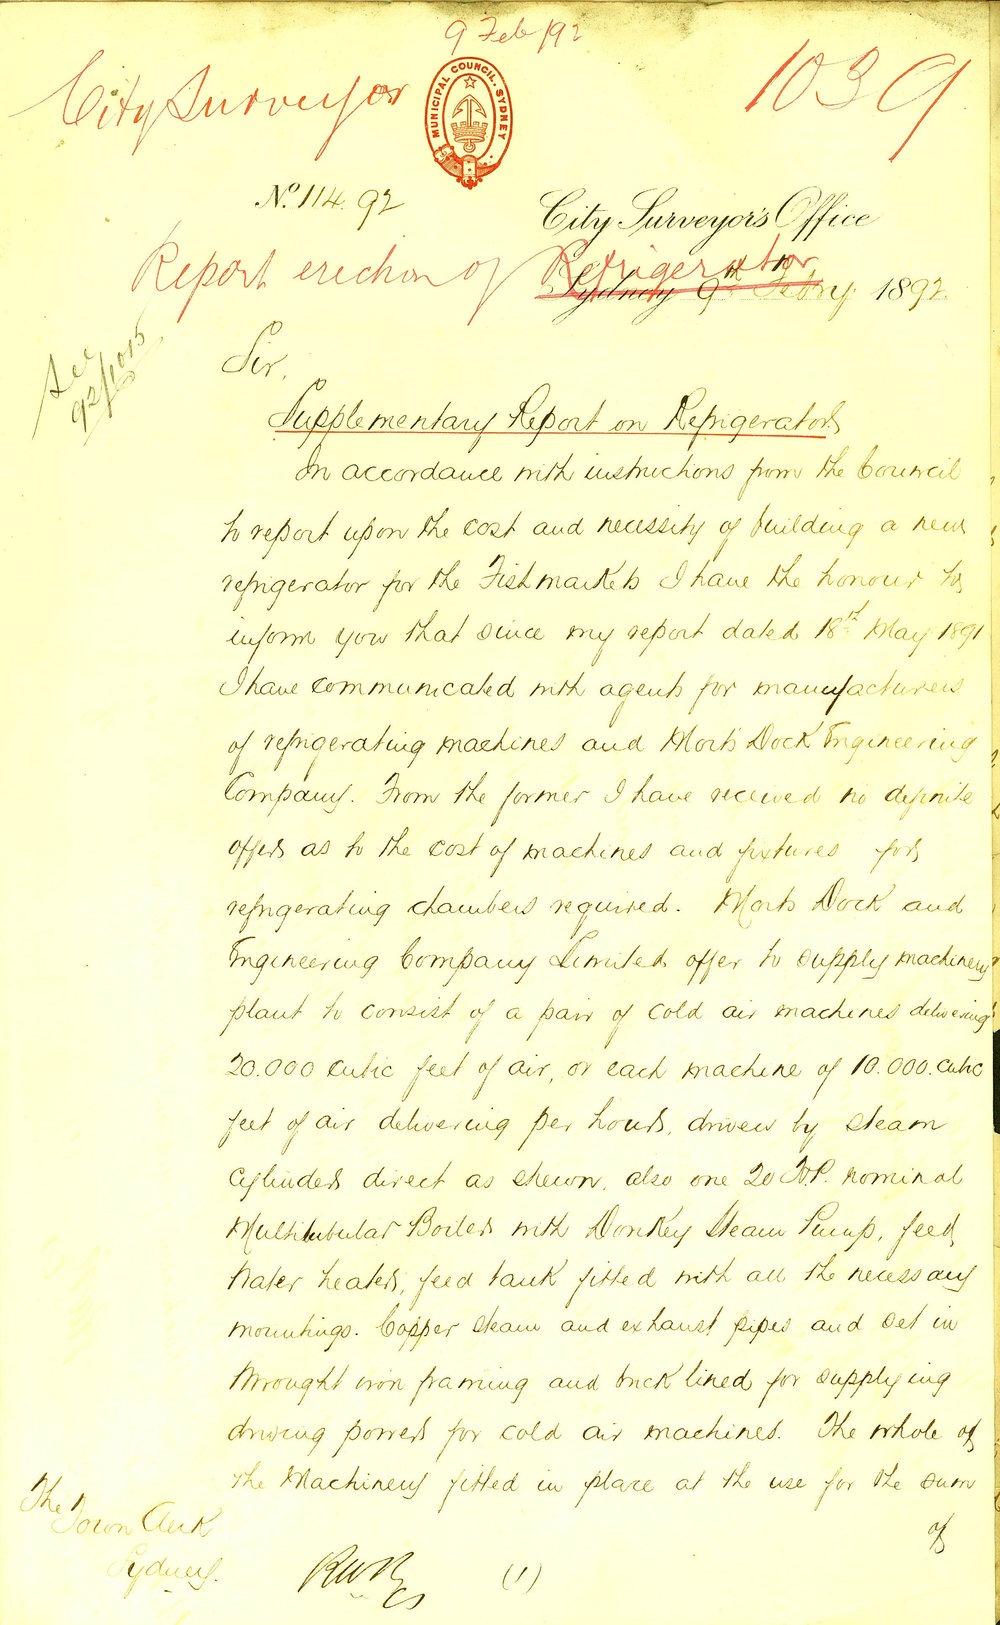 9 Feb /92
City Surveyor
MUNICIPAL COUNCIL. SYDNEY
1039
No. 114. 92
City Surveyor's Office
Report erection of Refrigerator
Sydney 9th Febry. 1892.
See
92/1015
Sir,
Supplementary Report on Refrigerators
In accordance with instructions from the Council
to report upon the cost and necessity of building a new
refrigerator for the Fishmarkets I have the honour to
inform you that since my report dated 18th May 1891
I have communicated with agents for manufacturers
of refrigerating machines and Morts Dock Engineering
Company. From the former I have received no definite
offers as to the cost of machines and fixtures for
refrigerating chambers required. Morts Dock and
Engineering Company Limited offer to supply machinery
plant to consist of a pair of cold air machines delivering
20.000 cubic feet of air, or each machine of 10.000. cubic
feet of air delivering per hour, driven by steam
cylinders direct as shewn, also one 20 H.P. nominal
Multitubular Boiler with Donkey Steam Pump, feed
water heater, feed tank fitted with all the necessary
mountings. Copper steam and exhaust pipes and set in
wrought iron framing and brick lined for supplying
driving power for cold air machines. The whole of
the Machinery fitted in place at the use for the sum
of
The
Town Clerk
Sydney.
(1)